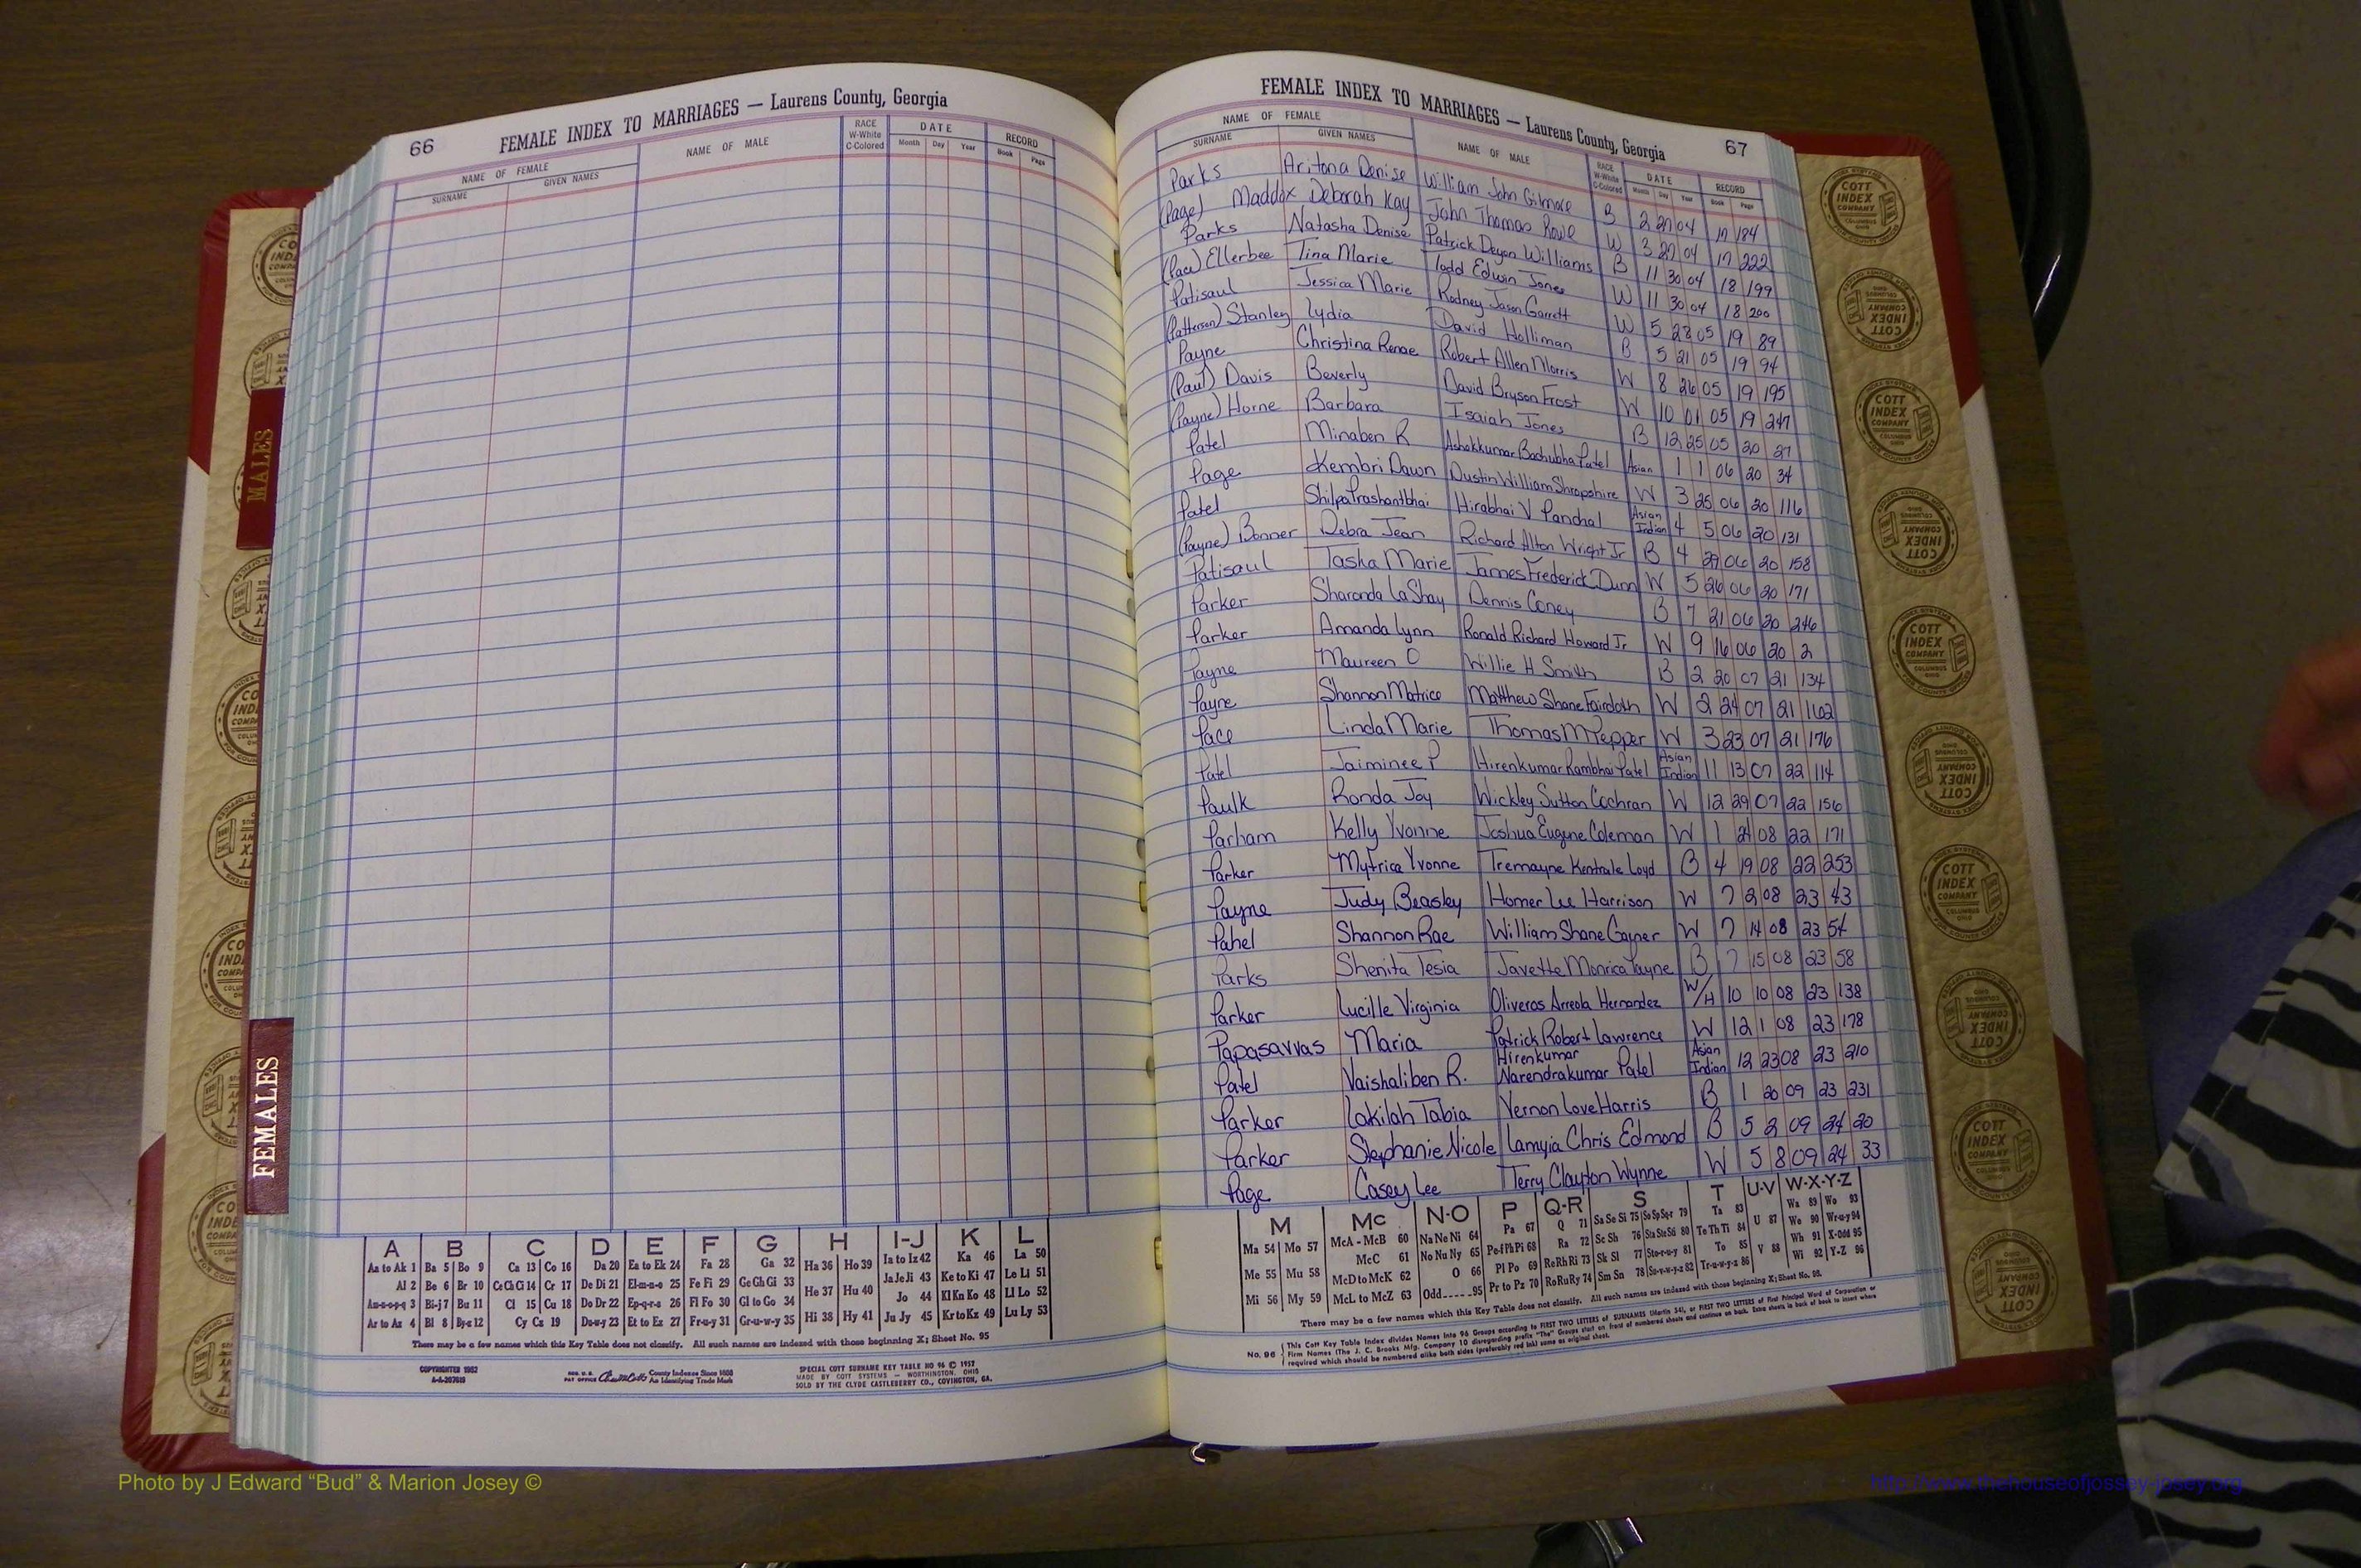 66
FEMALE INDEX TO MARRIAGES — Laurens County, Georgia
NAME OF FEMALE NAME OF MALE RACE W-White C-Colored DATE RECORD
SURNAME GIVEN NAMES Month Day Year Book Page
FEMALE INDEX TO MARRIAGES — Laurens County, Georgia
67
NAME OF FEMALE NAME OF MALE RACE W-White C-Colored DATE RECORD
SURNAME GIVEN NAMES Month Day Year Book Page
Parks Aritona Denise William John Gilmore B 2 27 04 17 184
(Page) Maddox Deborah Kay John Thomas Rowe W 3 27 04 17 222
Parks Natasha Denise Patrick Deyon Williams B 11 30 04 18 199
(Pace) Ellerbee Tina Marie Todd Edwin Jones W 11 30 04 18 200
Patisaul Jessica Marie Rodney Jason Garrett W 5 28 05 19 89
(Patterson) Stanley Lydia David Holliman B 5 21 05 19 94
Payne Christina Renae Robert Allen Morris W 8 26 05 19 195
(Paul) Davis Beverly David Bryson Frost W 10 01 05 19 247
(Payne) Horne Barbara Isaiah Jones B 12 25 05 20 27
Patel Minaben R Ashokkumar Bachubha Patel Asian 1 1 06 20 34
Page Kembri Dawn Dustin William Shropshire W 3 25 06 20 116
Patel Shilpa Prashantbhai Hirabhai V Panchal Asian Indian 4 5 06 20 131
(Payne) Bonner Debra Jean Richard Alton Wright Jr B 4 29 06 20 158
Patisaul Tasha Marie James Frederick Dunn W 5 26 06 20 171
Parker Sharonda LaShay Dennis Coney B 7 21 06 20 246
Parker Amanda Lynn Ronald Richard Howard Jr W 9 16 06 20 2
Payne Maureen O Willie H Smith B 2 20 07 21 134
Payne Shannon Matrice Matthew Shane Fairdoth W 2 24 07 21 162
Pace Linda Marie Thomas M Pepper W 3 23 07 21 176
Patel Jaiminee P Hirenkumar Rambhai Patel Asian Indian 11 13 07 22 114
Paulk Ronda Joy Wickley Sutton Cochran W 12 29 07 22 156
Parham Kelly Yvonne Joshua Eugene Coleman W 1 21 08 22 171
Parker Mytrica Yvonne Tremayne Kentrale Loyd B 4 19 08 22 253
Payne Judy Beasley Homer Lee Harrison W 7 2 08 23 43
Pahel Shannon Rae William Shane Gayner W 7 14 08 23 54
Parks Shenita Tesia Javette Monrica Payne B 7 15 08 23 58
Parker Lucille Virginia Oliveros Arreola Hernandez W/H 10 10 08 23 138
Papasavvas Maria Patrick Robert Lawrence W 12 1 08 23 178
Patel Vaishaliben R. Hirenkumar Narendrakumar Patel Asian Indian 12 23 08 23 210
Parker Lakilah Tabia Vernon Love Harris B 1 20 09 23 231
Parker Stephanie Nicole Lamyia Chris Edmond B 5 2 09 24 20
Page Casey Lee Terry Clayton Wynne W 5 8 09 24 33
MALES
FEMALES
A B C D E F G H I-J K L
Aa to Ak 1 Ba 5 Bo 9 Ca 13 Co 16 Da 20 Ea to Ek 24 Fa 28 Ga 32 Ha 36 Ho 39 Ia to Iz 42 Ka 46 La 50
Al 2 Be 6 Br 10 Ce Ch Ci 14 Cr 17 De Di 21 El-m-n-o 25 Fe Fi 29 Ge Gh Gi 33 He 37 Hu 40 Ja Je Ji 43 Ke to Ki 47 Le Li 51
An-n-o-p-q 3 Bi-j 7 Bu 11 Cl 15 Cu 18 Do Dr 22 Ep-q-r-s 26 Fl Fo 30 Gl to Go 34 Jo 44 Kl Kn Ko 48 Ll Lo 52
Ar to Az 4 Bl 8 By-z 12 Cy Cz 19 Du-w-y 23 Et to Ez 27 Fr-u-y 31 Gr-u-w-y 35 Hi 38 Hy 41 Ju Jy 45 Kr to Kz 49 Lu Ly 53
There may be a few names which this Key Table does not classify. All such names are indexed with those beginning X; Sheet No. 95
SPECIAL COTT SURNAME KEY TABLE NO 96 © 1957
MADE BY COTT SYSTEMS — WORTHINGTON, OHIO
SOLD BY THE CLYDE CASTLEBERRY CO., COVINGTON, GA.
County Indexes Since 1888
An Identifying Trade Mark
M Mc N-O P Q-R S T U-V W-X-Y-Z
Ma 54 Mo 57 McA - McB 60 Na Ne Ni 64 Pa 67 Q 71 Sa Se Si 75 So Sp Sq-r 79 Ta 83 Wa 89 Wo 93
McC 61 No Nu Ny 65 Pe-f Ph Pi 68 Ra 72 Sc Sh 76 Sta Ste Sti 80 Te Th Ti 84 U 87 We 90 Wr-u-y 94
Me 55 Mu 58 McD to McK 62 O 66 Pl Po 69 Re Rh Ri 73 Sk Sl 77 Sto-r-u-y 81 To 85 V 88 Wh 91 X-Odd 95
Mi 56 My 59 McL to McZ 63 Odd 95 Pr to Pz 70 Ro Ru Ry 74 Sm Sn 78 Su-v-w-y-z 82 Tr-u-w-y-z 86 Wi 92 Y-Z 96
There may be a few names which this Key Table does not classify. All such names are indexed with those beginning X; Sheet No. 95.
No. 96 This Cott Key Table Index divides Names into 96 Groups according to FIRST TWO LETTERS of SURNAMES (Martin 54), or FIRST TWO LETTERS of First Principal Word of Corporation or
Firm Names (The J. C. Brooks Mfg. Company 10 disregarding prefix "The") Groups start on front of numbered sheets and continue on back. Extra sheets in back of book to insert where
required which should be numbered alike both sides (preferably red ink) same as original sheet.
COTT INDEX COMPANY COLUMBUS OHIO
Photo by J Edward “Bud” & Marion Josey ©
http://www.thehouseofjossey-josey.org